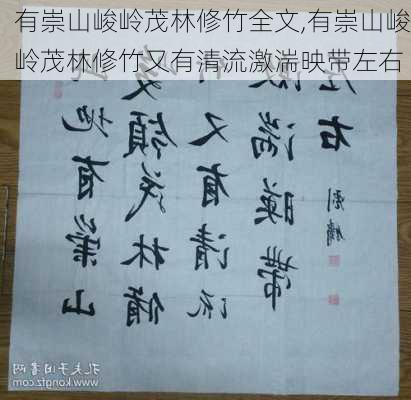 有崇山峻岭茂林修竹全文,有崇山峻
岭茂林修竹又有清流激湍映带左右
地有崇山
峻領茂林脩
又有清流
激湍映帶
左右
孔夫子旧書网
www.kongfz.com